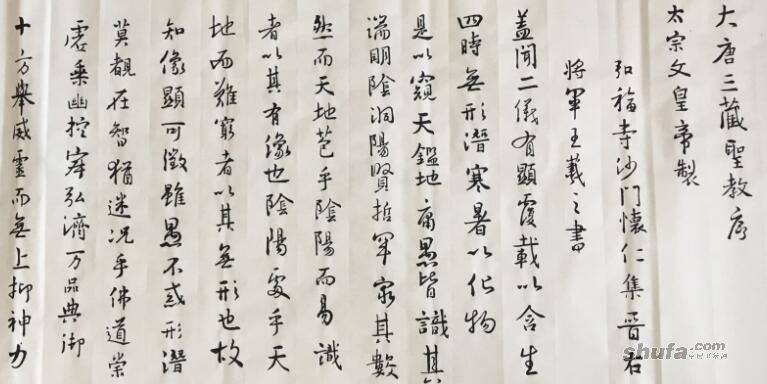 大唐三藏聖教序
太宗文皇帝製
弘福寺沙門懷仁集晉右
將軍王羲之書
蓋聞二儀有顯覆載以含生
四時無形潛寒暑以化物
是以窺天鑑地庸愚皆識其
端明陰洞陽賢哲罕窮其數
然而天地苞乎陰陽而易識
者以其有像也陰陽處乎天
地而難窮者以其無形也故
知像顯可徵雖愚不惑形潛
莫覩在智猶迷況乎佛道崇
虛乘幽控寂弘濟万品典御
十方舉威靈而無上抑神力
shufa.com